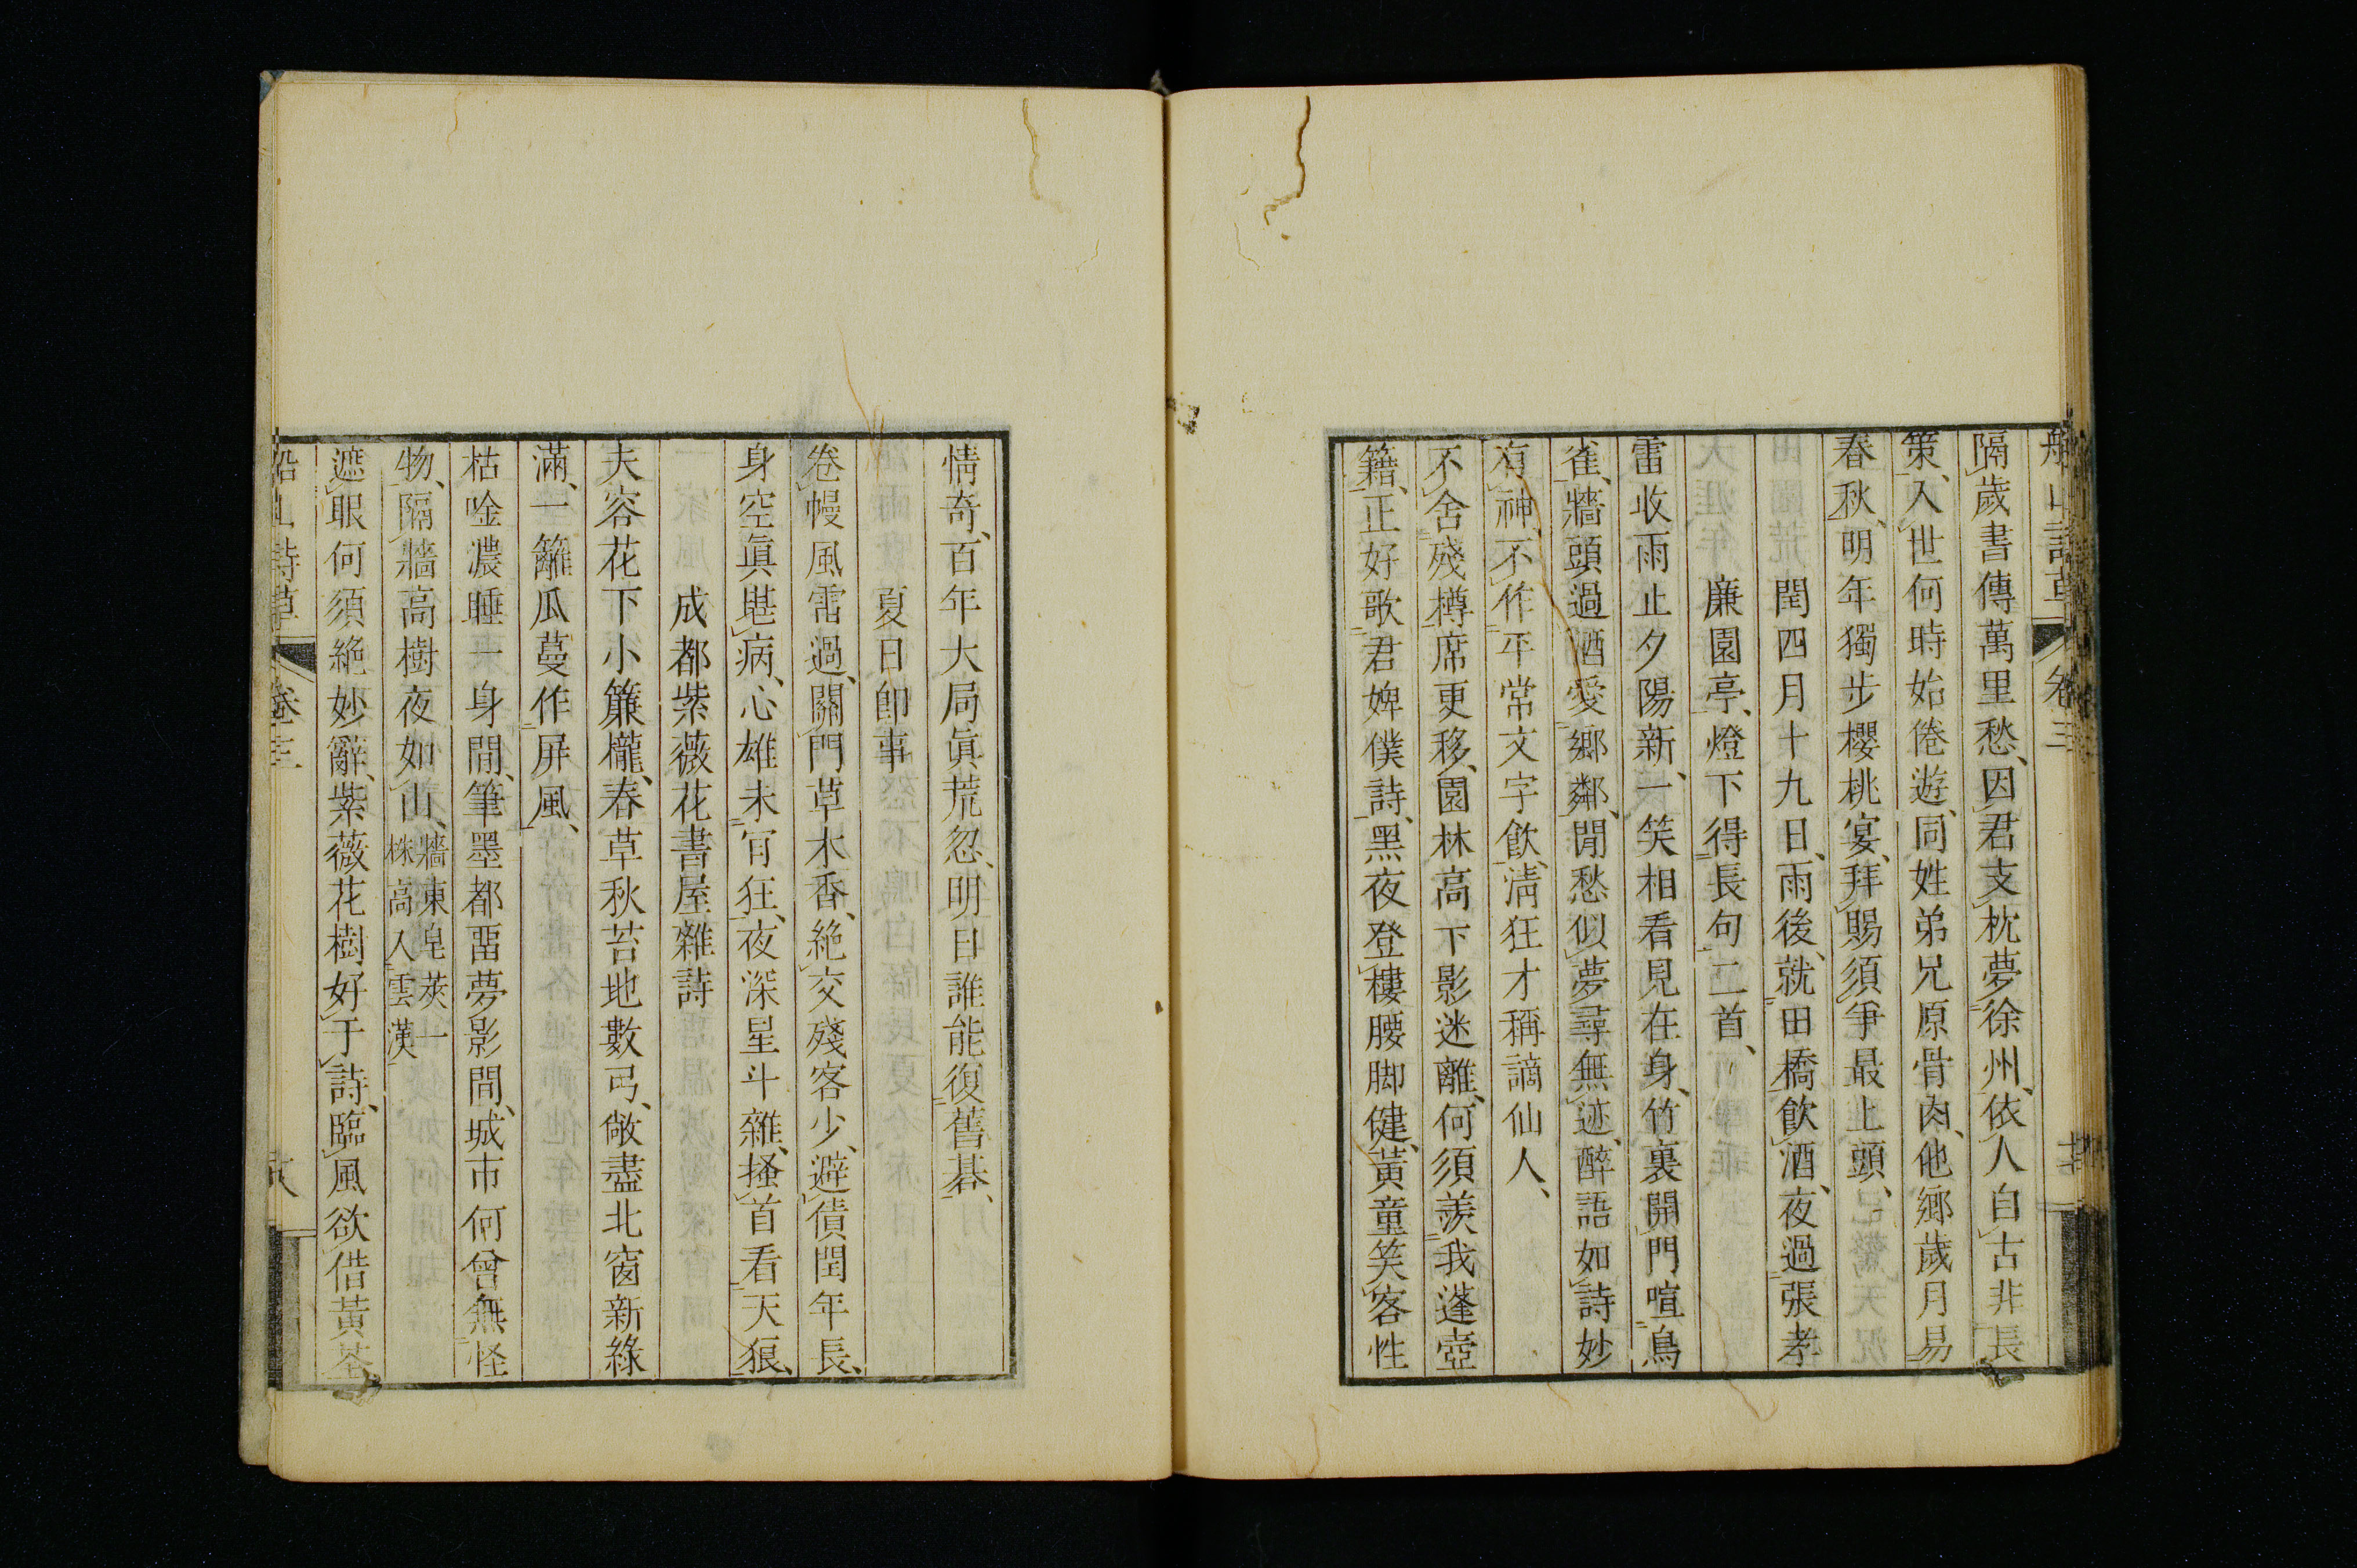 隔歲書傳萬里愁、因君支枕夢徐州、依人自古非長
策、入世何時始倦遊、同姓弟兄原骨肉、他鄉歲月易
春秋、明年獨步櫻桃宴、拜賜須爭最上頭、
閏四月十九日、雨後、就田橋飲酒、夜過張孝
廉園亭、燈下得長句二首、
雷收雨止夕陽新、一笑相看見在身、竹裏開門喧鳥
雀、牆頭過酒愛鄉鄰、閒愁似夢尋無迹、醉語如詩妙
有神、不作平常文字飲、淸狂才稱謫仙人、
不舍殘樽席更移、園林高下影迷離、何須羨我蓬壺
籍、正好歌君婢僕詩、黑夜登樓腰脚健、黃童笑客性
情奇、百年大局眞荒忽、明日誰能復舊棊、
夏日卽事
卷幔風雷過、關門草木香、絕交殘客少、避債閏年長、
身空眞耐病、心雄未肎狂、夜深星斗雜、搔首看天狼、
成都紫薇花書屋雜詩
夫容花下小簾櫳、春草秋苔地數弓、敞盡北窗新綠
滿、一籬瓜蔓作屏風、
枯唫濃睡一身閒、筆墨都畱夢影間、城市何曾無怪
物、隔牆高樹夜如山、牆東皂莢一株高入雲漢
遮眼何須絕妙辭、紫薇花樹好于詩、臨風欲借黃荃
卷三